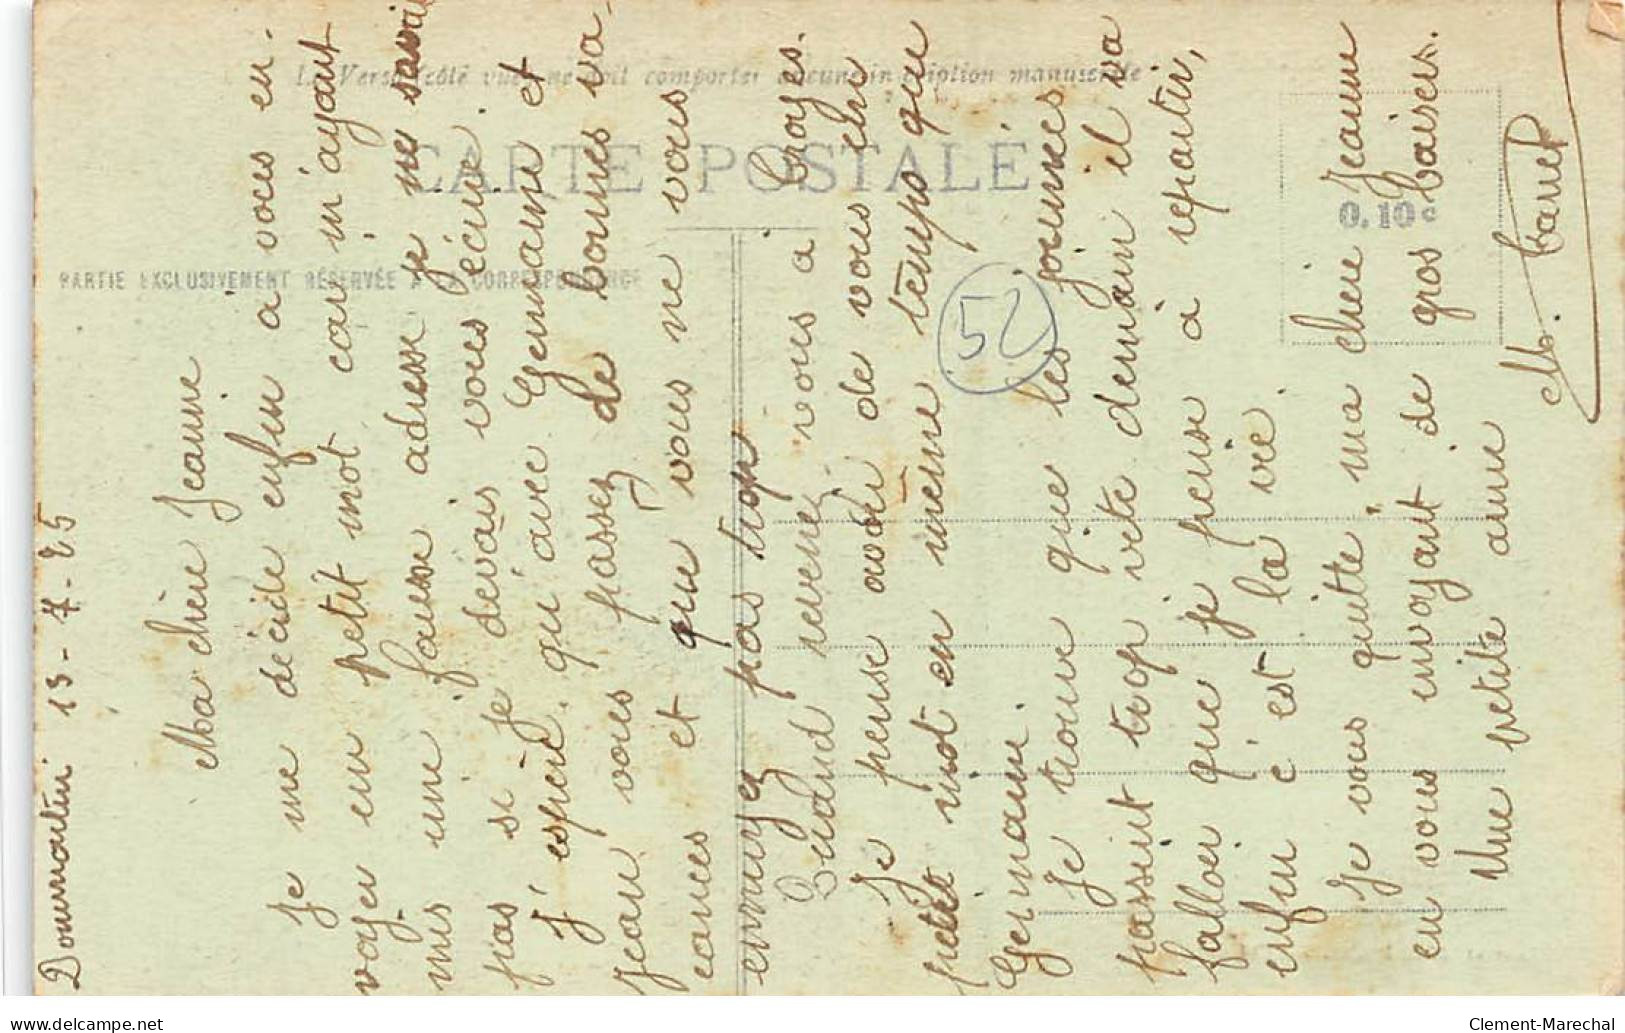 Dommartin 13-7-25
Ma chère Jeanne
Je me décide enfin a vous en-
voyer un petit mot car m'ayant
mis une fausse adresse je ne savais
pas si je devais vous écrire.
J'espère qu'avec Germaine et
Jean vous passez de bonnes va-
cances et que vous ne vous
ennuyez pas trop
Quand revenez vous a Troyes.
Je pense avoir de vous un
petit mot en même temps que
Germaine.
Je trouve que les journées
passent trop vite demain il va
falloir que je pense à repartir,
enfin c'est la vie.
Je vous quitte, ma chère Jeanne
en vous envoyant de gros baisers.
Une petite amie
52
La Verso (côté vue) ne doit comporter aucune inscription manuscrite
CARTE POSTALE
PARTIE EXCLUSIVEMENT RÉSERVÉE A LA CORRESPONDANCE
0.10c
delcampe.net
Clement-Marechal